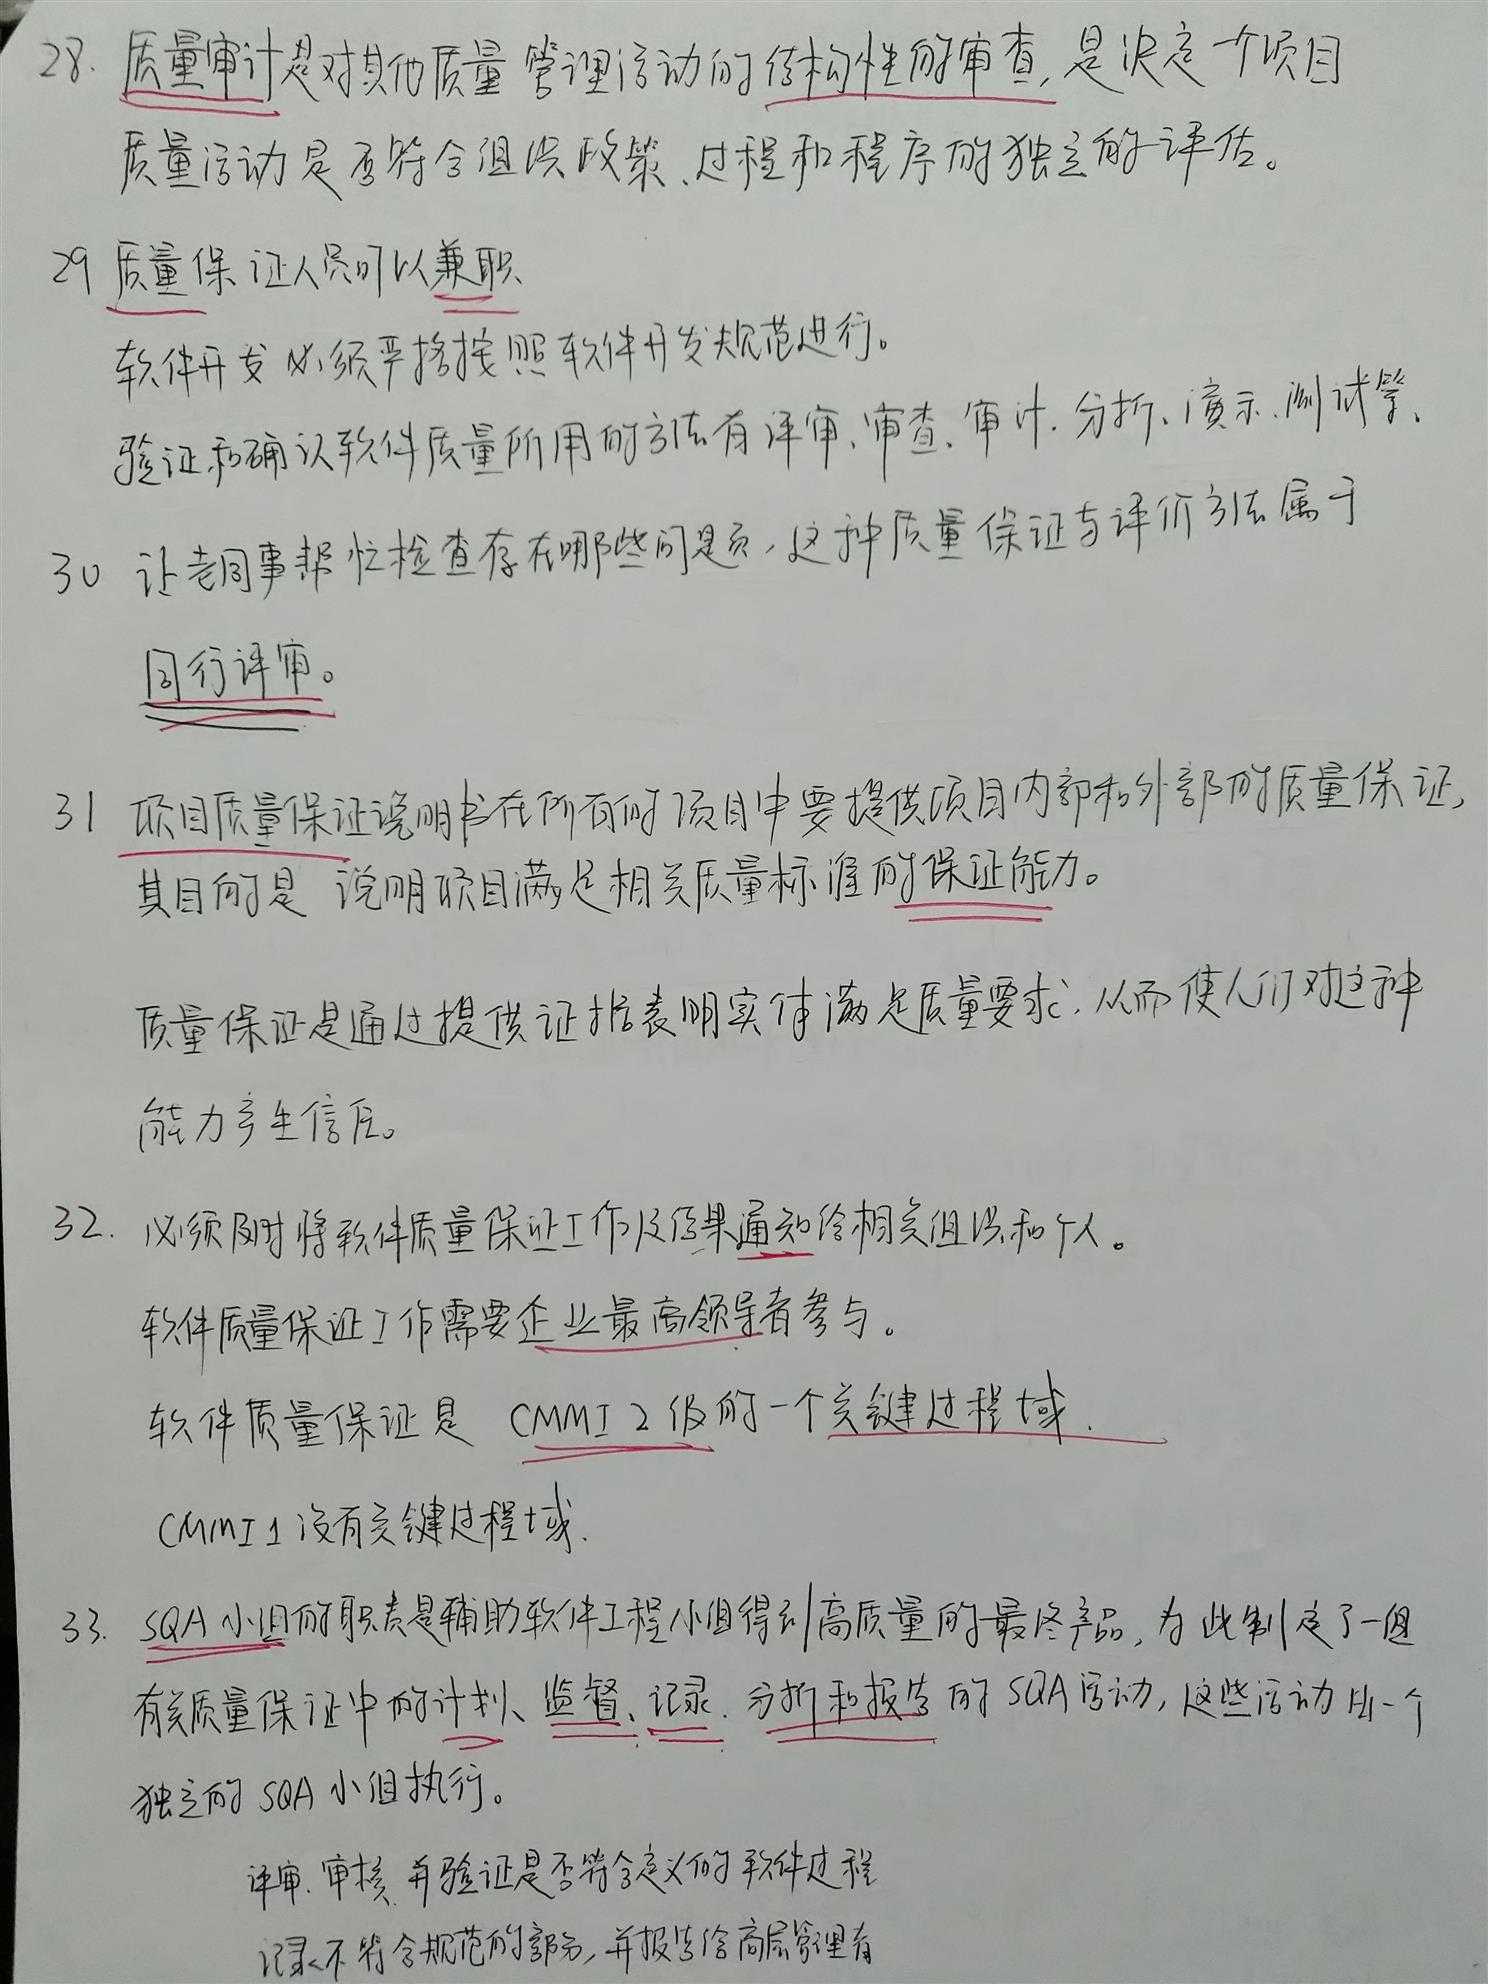 28. 质量审计是对其他质量管理活动的结构性的审查,是决定一个项目
质量活动是否符合组织政策、过程和程序的独立的评估。
29 质量保证人员可以兼职
软件开发必须严格按照软件开发规范进行。
验证和确认软件质量所用的方法有评审、审查、审计、分析、演示、测试等、
30 让老同事帮忙检查存在哪些问题,这种质量保证与评价方法属于
同行评审。
31 项目质量保证说明书在所有的项目中要提供项目内部和外部的质量保证,
其目的是说明项目满足相关质量标准的保证能力。
质量保证是通过提供证据表明实体满足质量要求,从而使人们对这种
能力产生信任。
32. 必须及时将软件质量保证工作及结果通知给相关组织和个人。
软件质量保证工作需要企业最高领导者参与。
软件质量保证是 CMMI 2级的一个关键过程域.
CMMI 1 没有关键过程域.
33. SQA小组的职责是辅助软件工程小组得到高质量的最终产品,为此制定了一组
有关质量保证中的计划、监督、记录、分析和报告的SQA活动,这些活动由一个
独立的SQA小组执行。
评审、审核并验证是否符合定义的软件过程
记录不符合规范的部分,并报告给高层管理者